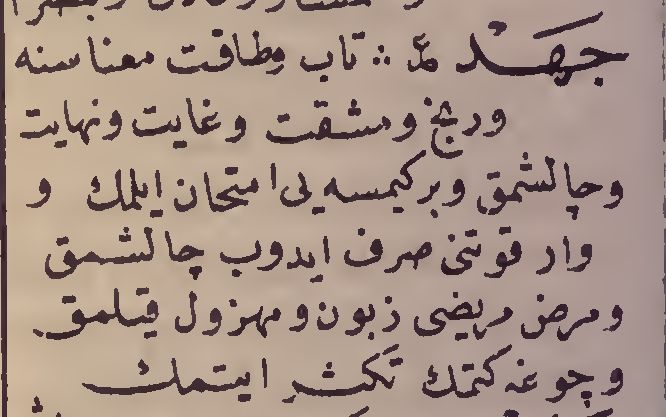 جهد ع ∴ تاب وطاقت معناسنه
ورنج ومشقت وغايت ونهايت
وچالشمق وبركيمسه يى امتحان ايلمك و
وار قوتنى صرف ايدوب چالشمق
ومرض مريضى زبون ومهزول قيلمق
وچوغه كتمك تكثر ايتمك